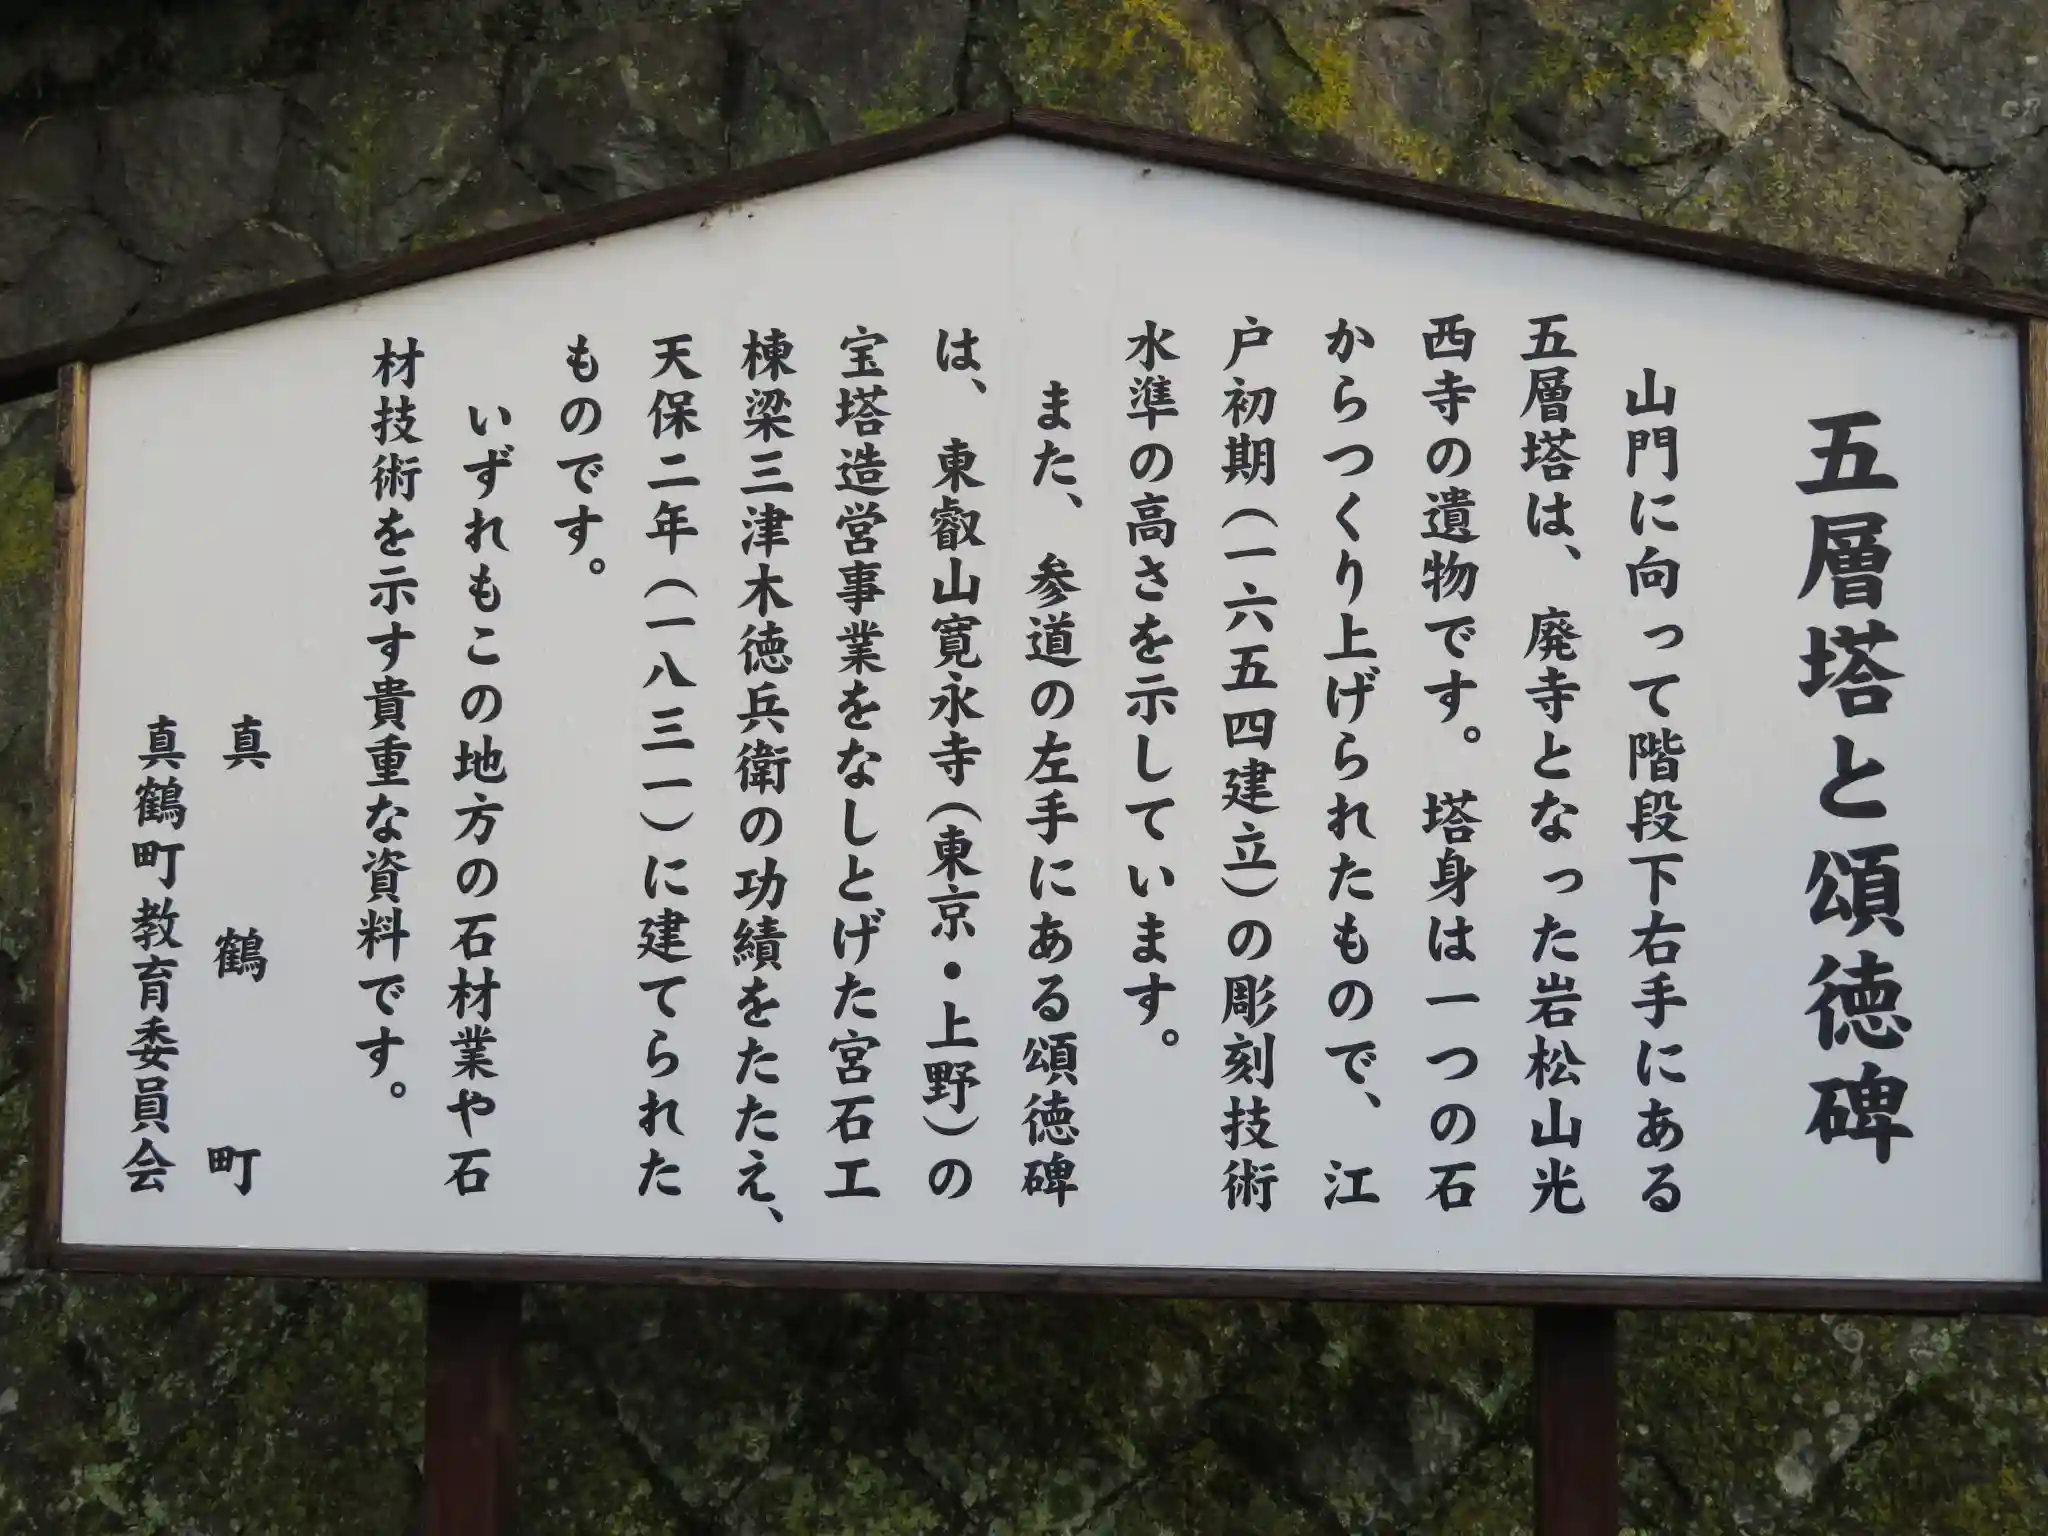 五層塔と頌徳碑
山門に向って階段下右手にある
五層塔は、廃寺となった岩松山光
西寺の遺物です。塔身は一つの石
からつくり上げられたもので、江
戸初期(一六五四建立)の彫刻技術
水準の高さを示しています。
また、参道の左手にある頌徳碑
は、東叡山寛永寺(東京・上野)の
宝塔造営事業をなしとげた宮石工
棟梁三津木徳兵衛の功績をたたえ、
天保二年(一八三一)に建てられた
ものです。
いずれもこの地方の石材業や石
材技術を示す貴重な資料です。
真鶴町
真鶴町教育委員会